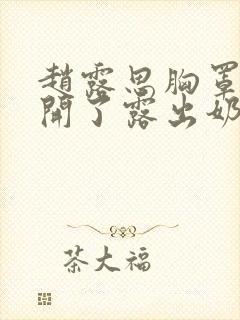 趙露思胸罩
開了露出奶
茶大福